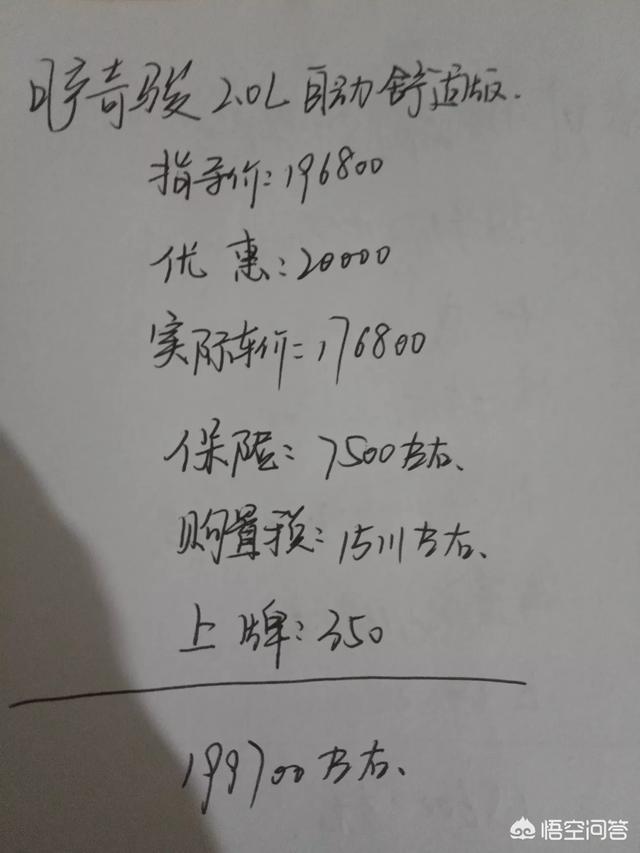 日产奇骏 2.0L 自动舒适版.
指导价:196800
优惠:20000
实际车价=176800
保险:7500左右、
购置税:15111左右、
上牌:350
199700左右、
悟空问答